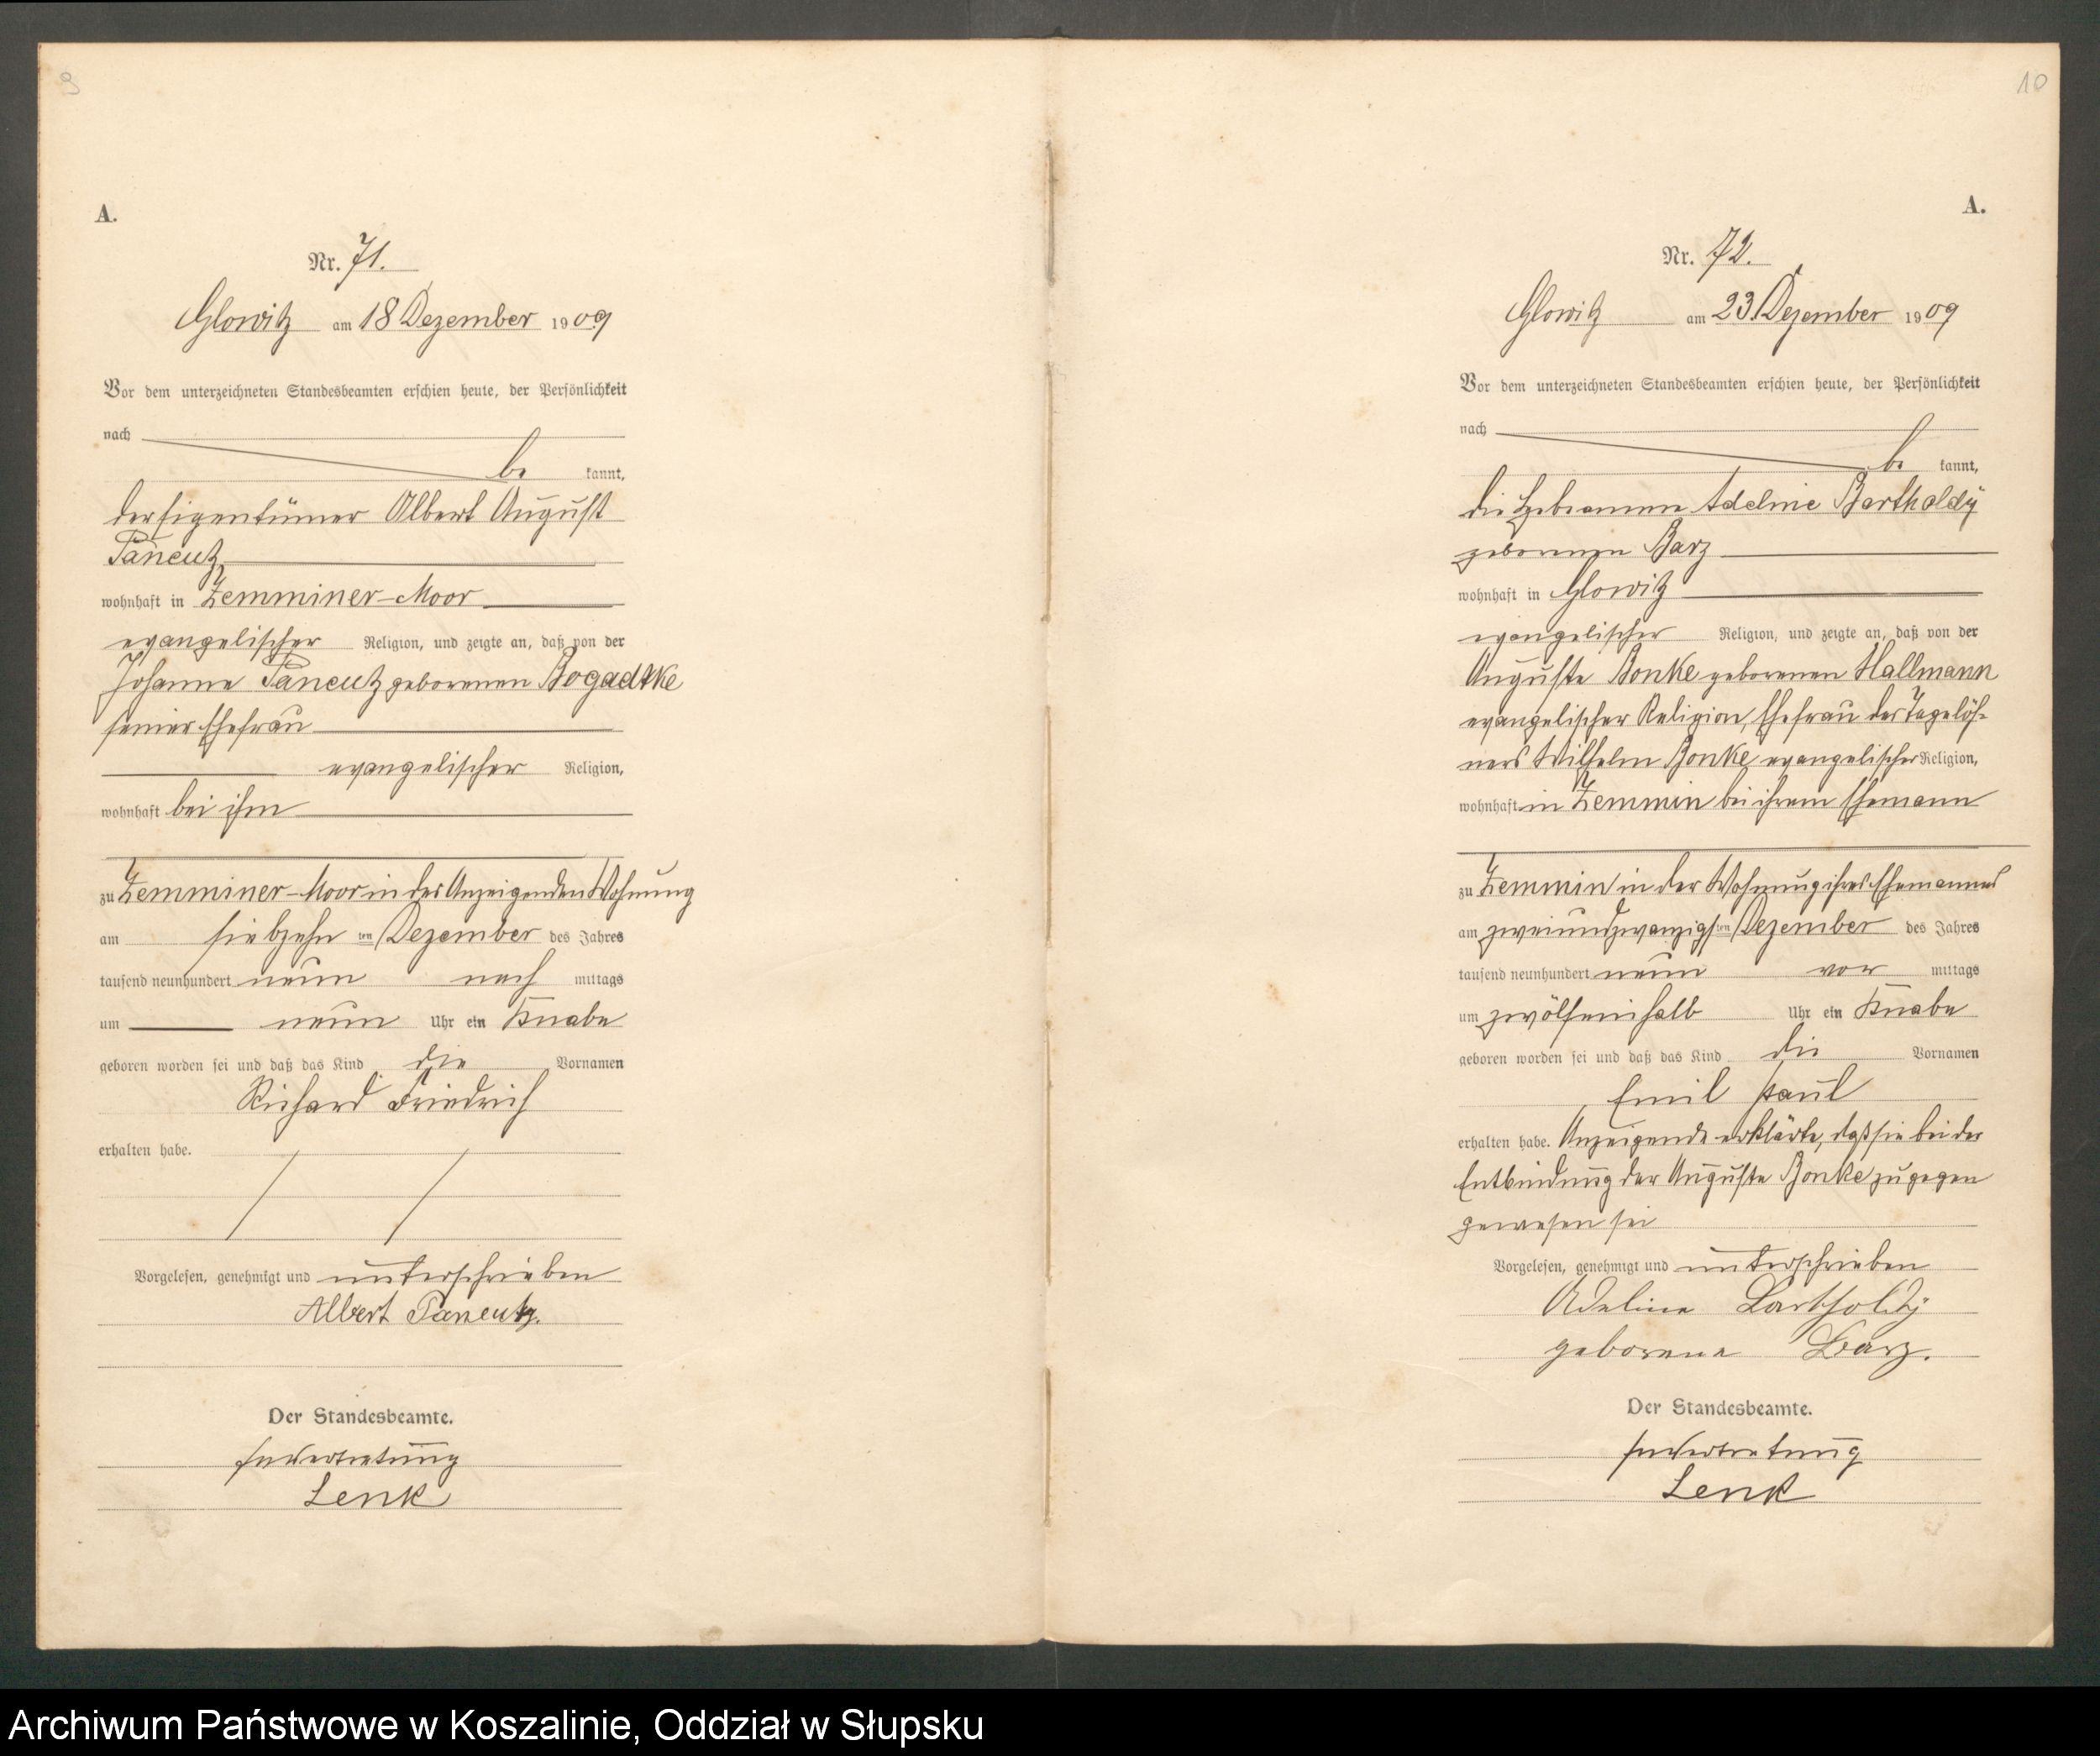 9
A.
Nr. 71.
Glowitz am 18 Dezember 1909
Vor dem unterzeichneten Standesbeamten erschien heute, der Persönlichkeit
nach
be kannt,
der Eigentümer Albert August
Paneutz
wohnhaft in Zemminer-Moor
evangelischer Religion, und zeigte an, daß von der
Johanne Paneutz geborenen Bogadtke
seiner Ehefrau
evangelischer Religion,
wohnhaft bei ihm
zu Zemminer-Moor in des Anzeigenden Wohnung
am siebzehn ten Dezember des Jahres
tausend neunhundert neun nach mittags
um neun Uhr ein Knabe
geboren worden sei und daß das Kind die Vornamen
Richard Friedrich
erhalten habe.
Vorgelesen, genehmigt und unterschrieben
Albert Paneutz.
Der Standesbeamte.
In Vertretung
Lenk
10
A.
Nr. 72.
Glowitz am 23. Dezember 1909
Vor dem unterzeichneten Standesbeamten erschien heute, der Persönlichkeit
nach
be kannt,
die Hebamme Adeline Bartholdy
geborenen Barz
wohnhaft in Glowitz
evangelischer Religion, und zeigte an, daß von der
Auguste Bonke geborenen Hallmann
evangelischer Religion, Ehefrau des Tagelöh-
ners Wilhelm Bonke, evangelischer Religion,
wohnhaft in Zemmin bei ihrem Ehemann
zu Zemmin in der Wohnung ihres Ehemannes
am zweiundzwanzigsten Dezember des Jahres
tausend neunhundert neun vor mittags
um zwölfeinhalb Uhr ein Knabe
geboren worden sei und daß das Kind die Vornamen
Emil Paul
erhalten habe. Anzeigende erklärte, daß sie bei der
Entbindung der Auguste Bonke zugegen
gewesen sei
Vorgelesen, genehmigt und unterschrieben
Adeline Bartholdy
geborene Barz.
Der Standesbeamte.
In Vertretung
Lenk
Archiwum Państwowe w Koszalinie, Oddział w Słupsku